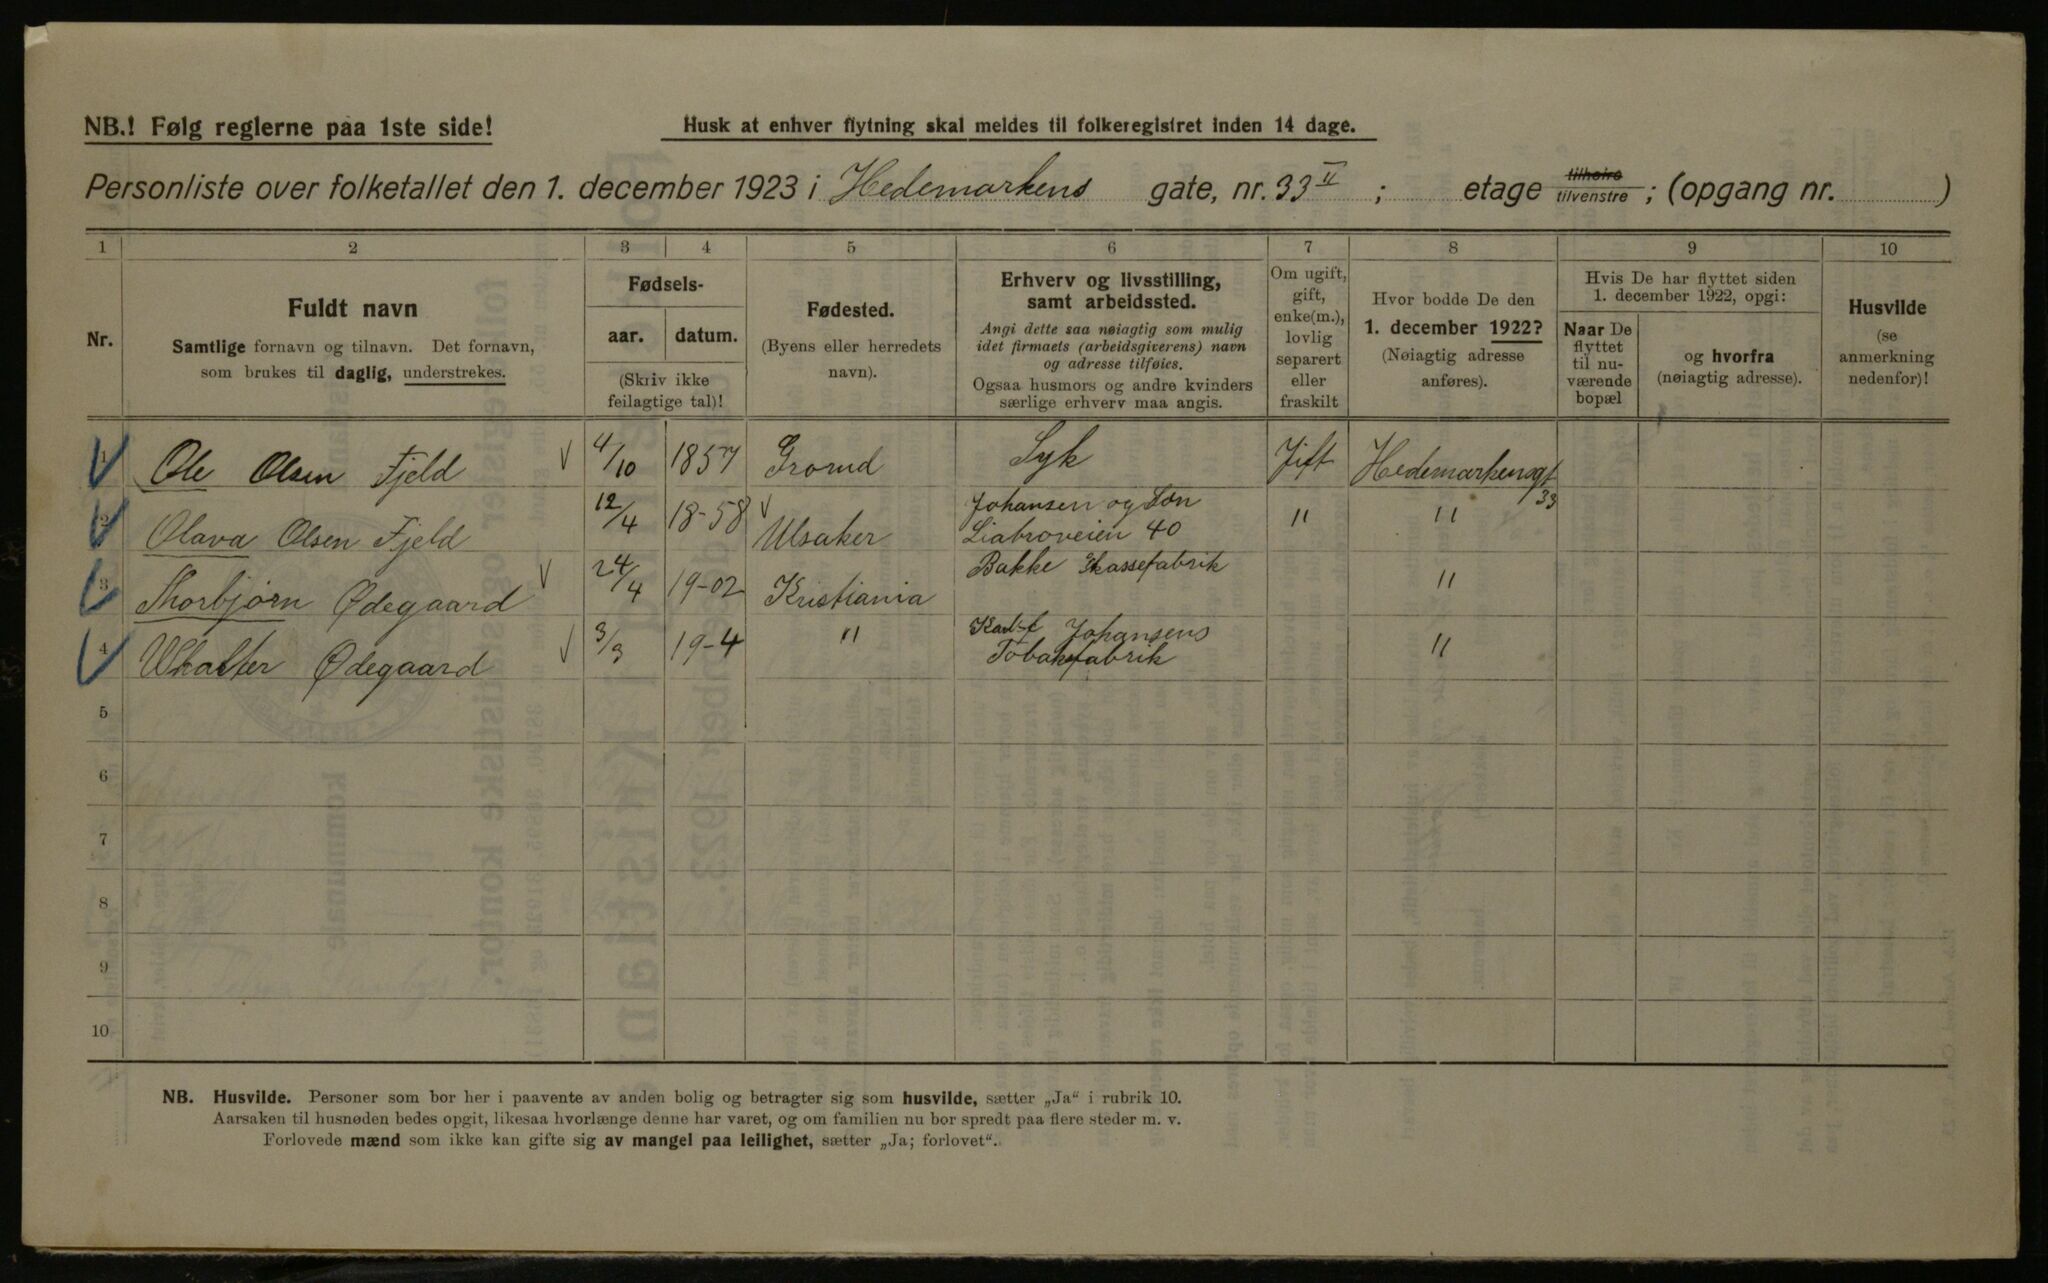 NB.! Følg reglerne paa 1ste side!
Husk at enhver flytning skal meldes til folkeregistret inden 14 dage.
Personliste over folketallet den 1. december 1923 i Hedemarkens gate, nr. 33 II ; etage tilhøire tilvenstre ; (opgang nr. )
1 2 3 4 5 6 7 8 9 10
Nr.
Fuldt navn
Samtlige fornavn og tilnavn. Det fornavn,
som brukes til daglig, understrekes.
Fødsels-
aar. datum.
(Skriv ikke
feilagtige tal)!
Fødested.
(Byens eller herredets
navn).
Erhverv og livsstilling,
samt arbeidssted.
Angi dette saa nøiagtig som mulig
idet firmaets (arbeidsgiverens) navn
og adresse tilføies.
Ogsaa husmors og andre kvinders
særlige erhverv maa angis.
Om ugift,
gift,
enke(m.),
lovlig
separert
eller
fraskilt
Hvor bodde De den
1. december 1922?
(Nøiagtig adresse
anføres).
Hvis De har flyttet siden
1. december 1922, opgi:
Naar De
flyttet
til nu-
værende
bopæl
og hvorfra
(nøiagtig adresse).
Husvilde
(se
anmerkning
nedenfor)!
1 Ole Olsen Fjeld 4/10 1857 Grorud Syk Gift Hedemarkensgt 33
2 Olava Olsen Fjeld 12/4 18-58 Ulsaker Johansen og Søn " "
Liabroveien 40
3 Thorbjørn Ødegaard 24/4 19-02 Kristiania Bakke Ekassefabrik "
4 Whalter Ødegaard 3/3 19-4 " Johansens "
Tobakfabrik
5
6
7
8
9
10
NB. Husvilde. Personer som bor her i paavente av anden bolig og betragter sig som husvilde, sætter „Ja“ i rubrik 10.
Aarsaken til husnøden bedes opgit, likesaa hvorlænge denne har varet, og om familien nu bor spredt paa flere steder m. v.
Forlovede mænd som ikke kan gifte sig av mangel paa leilighet, sætter „Ja; forlovet“.